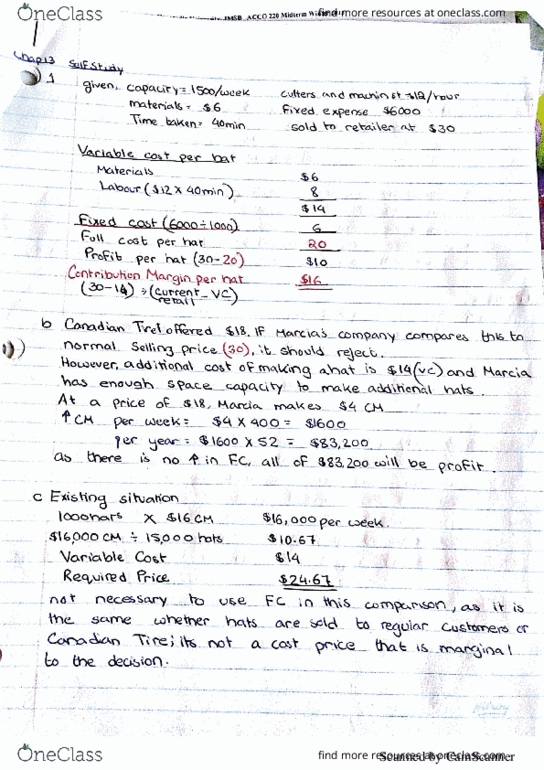 OneClass
find more resources at oneclass.com
JMSB ACCO 220 Midterm
Chap 13 Self Study
1
given, capacity = 1500/week cutters and machinist = $12/hour
materials = $6 Fixed expense $6000
Time taken = 40min sold to retailer at $30
Variable cost per hat
Materials $6
Labour ($12 x 40min) 8
$14
Fixed cost (6000÷1000) 6
Full cost per hat 20
Profit per hat (30-20) $10
Contribution Margin per hat $16
(30-14) → (current retail - VC)
b Canadian Tire offered $18. If Marcia's company compares this to
normal selling price (30), it should reject.
However, additional cost of making a hat is $14 (VC) and Marcia
has enough space capacity to make additional hats.
At a price of $18, Marcia makes $4 CM
↑ CM per week = $4 x 400 = $1600
per year = $1600 x 52 = $83,200
as there is no ↑ in FC, all of $83,200 will be profit.
c Existing situation
1000 hats x $16 CM $16,000 per week
$16,000 CM ÷ 15,000 hats $10.67
Variable Cost $14
Required Price $24.67
not necessary to use FC in this comparison, as it is
the same whether hats are sold to regular customers or
Canadian Tire; its not a cost price that is marginal
to the decision.
OneClass
find more resources at oneclass.com
Scanned by CamScanner